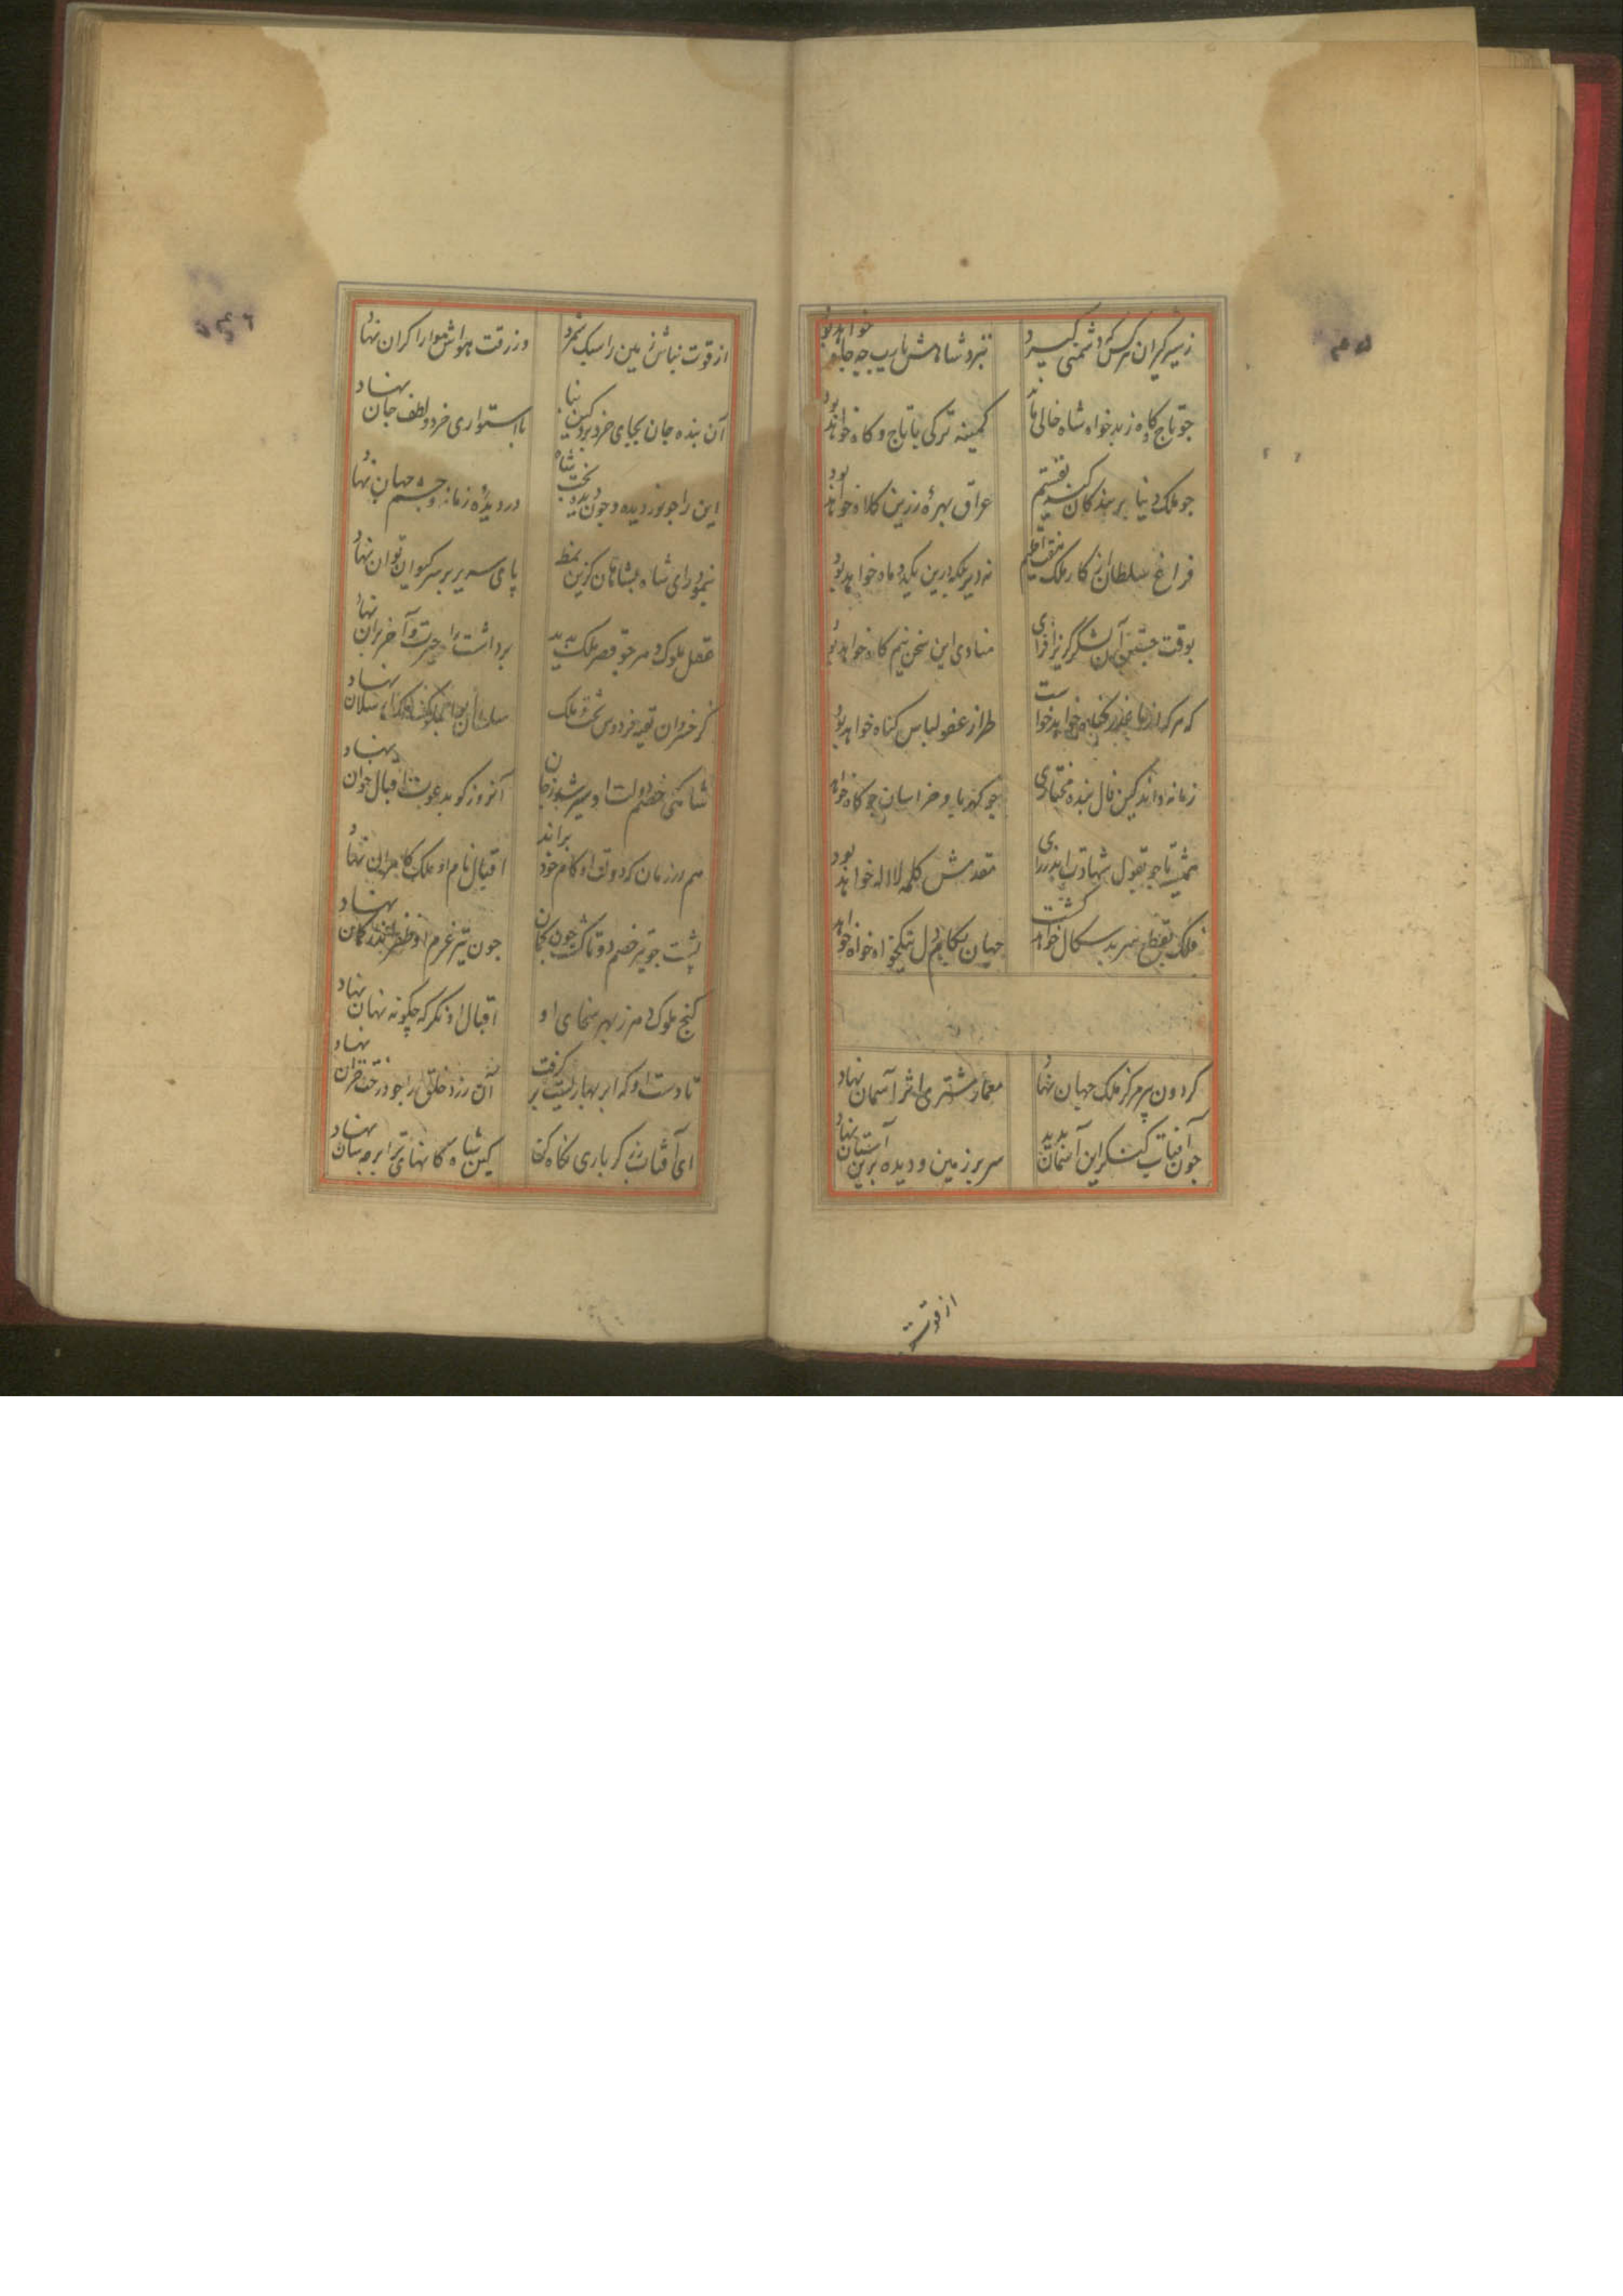 زشیر کیران هرکس که دشمنی کیرد
نبرد شاهش یارب چه جا خواهد بود
چو تاج و کاه ز بدخواه شاه خالی ماند
کمینه ترکی با تاج و کاه خواهد بود
چو ملک دنیا بر بندکان کند قسمت
عراق بهرهٔ زرین کلاه خواهد بود
فراغ سلطان از کار ملک
نه دیر بلکه درین یکدو ماه خواهد بود
بوقت جستن آن لشکر کریز افزای
منادی این سخن نیم کاه خواهد بود
که هرکه از ما عذر کناه خواهد خواست
طراز عفو لباس کناه خواهد بود
زمانه داند کین فال بنده مختاری
چو کهربا و خراسان چو کاه خواهد
همیشه تا چو بقول شهادت
مقدمش کلمه لا اله خواهد بود
فلک بقطع سر بدسکال خواهد کشت
جهان بکام دل نیکخواه خواهد
کردون بر مرکز ملک جهان نهاد
معمار مشتری اثر آسمان نهاد
چون آفتاب کنکر این آسمان بدید
سر بر زمین و دیده برین آستان نهاد
از قوت
از قوت بناش زمین را سبک شمرد
وز رقت هواش هوا را کران نهاد
آن بنده جان بجای خرد برد کین بنا
با استواری خرد و لطف جان نهاد
این را چو نور دیده و چون دید بخت شاه
در دیدهٔ زمانه و چشم جهان نهاد
نمود رای شاه بشاهان کزین نمط
پای سریر بر سر کیوان توان نهاد
عقل ملوک دهر چو قصر ملک بدید
برداشت را حیرت و آخر بران نهاد
کر خسروان تعبیه فردوس تخت ملک
سلطان نهاد
شاهی که خصم دولت او سیر شد ز جان
آنروز کو بدعوت اقبال جوان نهاد
هم در زمان که دولت او کام خود براند
اقبال نام او ملک کامران نهاد
پشت چو تیر خصم دوتا کشت چون کمان
چون تیر عزم او ظفر اندر کمان نهاد
کنج ملوک دهر ز بهر سخای او
اقبال او نکر که چکونه نهان نهاد
تا دست او که ابر بهاریست بر کرفت
آن رزد خلق را چو درخت خزان نهاد
ای آفتاب کر باری نکاه کن
کین شاه کانهای ترا بر چه سان نهاد